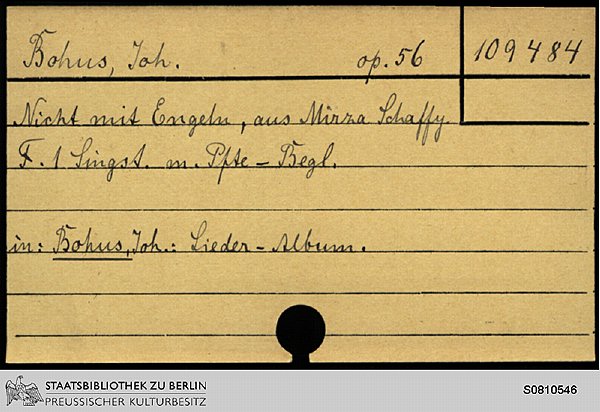 Bohus, Joh. op. 56 109484
Nicht mit Engeln, aus Mirza Schaffy
F. 1 Singst. m. Pfte - Begl.
in: Bohus, Joh.: Lieder - Album.
STAATSBIBLIOTHEK ZU BERLIN
PREUSSISCHER KULTURBESITZ
S0810546